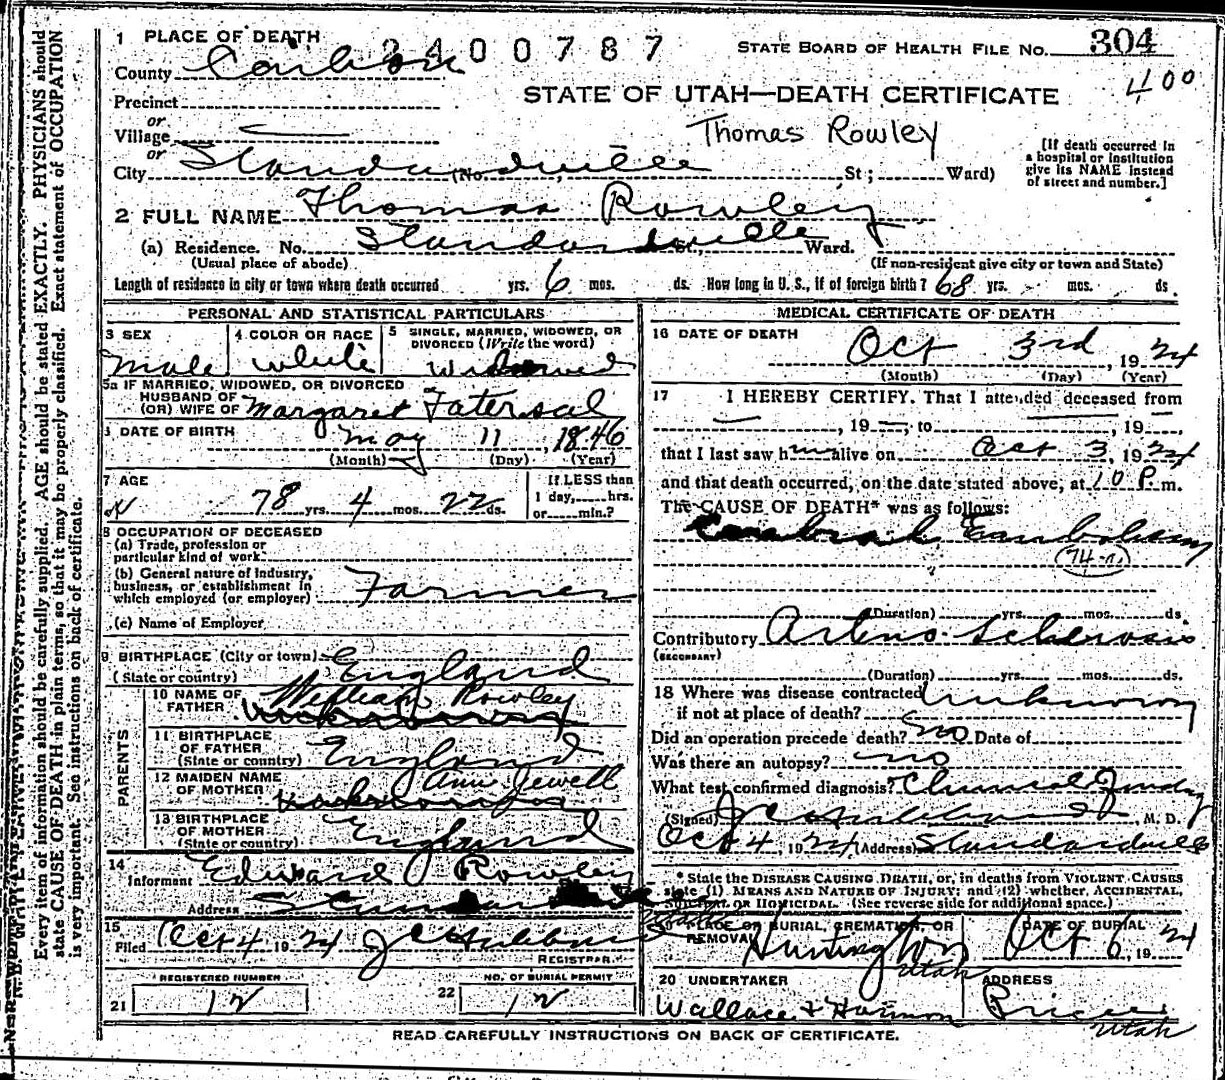 1 PLACE OF DEATH 2400787 STATE BOARD OF HEALTH FILE No. 304
County Carbon 400
STATE OF UTAH—DEATH CERTIFICATE
Precinct
or
Village
Thomas Rowley
[If death occurred in a hospital or institution give its NAME instead of street and number.]
or
City Standardville (No. , St; Ward)
2 FULL NAME Thomas Rowley
(a) Residence. No. Standardville St., Ward.
(Usual place of abode) (If non-resident give city or town and State)
Length of residence in city or town where death occurred yrs. 6 mos. ds. How long in U. S., if of foreign birth? 68 yrs. mos. ds.
PERSONAL AND STATISTICAL PARTICULARS
3 SEX 4 COLOR OR RACE 5 SINGLE, MARRIED, WIDOWED, OR
DIVORCED (Write the word)
Male white Widowed
5a IF MARRIED, WIDOWED, OR DIVORCED
HUSBAND OF
(OR) WIFE OF Margaret
6 DATE OF BIRTH May 11, 1846
(Month) (Day) (Year)
7 AGE If LESS than
78 yrs. 4 mos. 22 ds. 1 day, hrs.
or min.?
8 OCCUPATION OF DECEASED
(a) Trade, profession or
particular kind of work
(b) General nature of industry,
business, or establishment in
which employed (or employer) Farmer
(c) Name of Employer
9 BIRTHPLACE (City or town)
(State or country) England
PARENTS
10 NAME OF
FATHER William Rowley
11 BIRTHPLACE
OF FATHER
(State or country) England
12 MAIDEN NAME
OF MOTHER Ann Jewell
13 BIRTHPLACE
OF MOTHER
(State or country) England
14
Informant Edward Rowley
Address
15
Filed Oct 4, 1924 J C Hubbard
REGISTRAR
REGISTERED NUMBER NO. OF BURIAL PERMIT
21 12 22 12
MEDICAL CERTIFICATE OF DEATH
16 DATE OF DEATH Oct 3rd, 1924
(Month) (Day) (Year)
17 I HEREBY CERTIFY, That I attended deceased from
, 19 , to , 19
that I last saw him alive on Oct 3, 1924
and that death occurred, on the date stated above, at 10 P. m.
The CAUSE OF DEATH* was as follows:
Cerebral Embolism
74-a
(Duration) yrs. mos. ds.
Contributory Arterio-Sclerosis
(SECONDARY)
(Duration) yrs. mos. ds.
18 Where was disease contracted
if not at place of death? Unknown
Did an operation precede death? no Date of
Was there an autopsy? no
What test confirmed diagnosis?
(Signed) J C Hubbard, M. D.
Oct 4, 1924 (Address) Standardville
* State the DISEASE CAUSING DEATH, or, in deaths from VIOLENT CAUSES
state (1) MEANS AND NATURE OF INJURY; and (2) whether ACCIDENTAL,
SUICIDAL OR HOMICIDAL. (See reverse side for additional space.)
19 PLACE OF BURIAL, CREMATION, OR
REMOVAL Huntington Utah
DATE OF BURIAL
Oct 6, 1924
20 UNDERTAKER ADDRESS
Wallace & Harmon Price, Utah
READ CAREFULLY INSTRUCTIONS ON BACK OF CERTIFICATE.
Every item of information should be carefully supplied. AGE should be stated EXACTLY. PHYSICIANS should
state CAUSE OF DEATH in plain terms, so that it may be properly classified. Exact statement of OCCUPATION
is very important. See instructions on back of certificate.